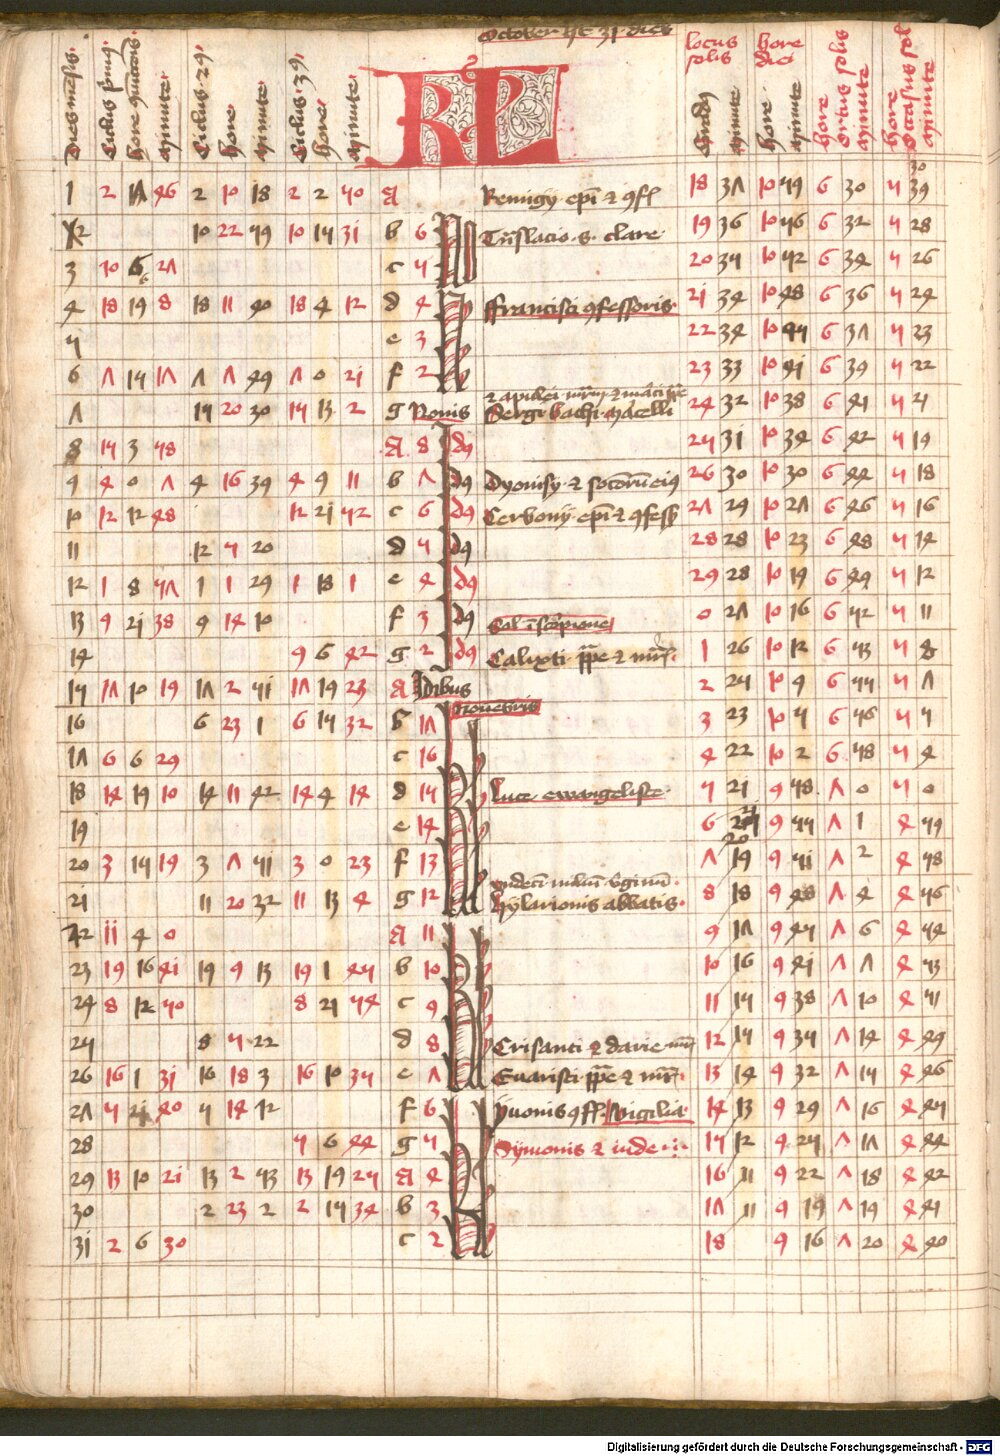 October hȝ 31 dies
Dies mēsis. Ciclus prim9 hore minute Ciclus 29 hore minute Ciclus 39 hore minute KL locus solis Gradus minute hore diei hore minute hore ortus solis minute hore Occasus sol minute
30
1 2 17 46 2 10 18 2 2 50 A Remigy epī 2 9ff 18 37 10 59 6 30 5 39
2 10 22 59 10 15 31 b 6 N Trāslacio s. clare 19 36 10 56 6 32 5 28
3 10 6 27 c 5 20 35 10 52 6 34 5 26
4 18 19 8 18 11 40 18 4 12 d 4 N ffrancisci 9fessoris 21 34 10 48 6 36 5 24
5 e 3 22 34 10 44 6 37 5 23
6 7 15 17 7 7 49 7 0 21 f 2 23 33 10 41 6 39 5 22
7 15 20 30 15 13 2 g Nonis Sergi bachi marcelli 24 32 10 38 6 41 5
8 15 3 58 A 8 Id9 25 31 10 34 6 42 5 19
9 4 0 7 4 16 39 4 9 11 b 7 d9 Dyonisy 2 sociorū ei9 26 30 10 30 6 44 5 18
10 12 12 48 12 21 52 c 6 d9 Cerbonij epī 2 9fess 27 29 10 27 6 46 5 16
11 12 5 20 d 5 d9 28 28 10 23 6 48 5 14
12 1 8 57 1 1 29 1 18 1 e 4 d9 29 28 10 19 6 49 5 12
13 9 21 38 9 14 10 f 3 d9 Sol ī scorpione 0 27 10 16 6 52 5 11
14 9 6 42 g 2 d9 Calixti ppe 2 mr̄. 1 26 10 12 6 53 5 8
15 17 10 19 17 2 51 17 19 23 A Idibus 2 25 10 9 6 55 5 7
Nouebris
16 6 23 1 6 15 32 b 17 3 23 10 5 6 56 5 5
17 6 6 29 c 16 4 22 10 2 6 58 5 4
18 14 19 10 14 11 42 14 4 14 d 15 KL luce ewangeliste 5 21 9 58 7 0 5 0
19 e 14 6 20 9 55 7 1 4 59
20 3 15 19 3 7 51 3 0 23 f 13 7 19 9 51 7 2 4 58
vndeci miliū v̄ginū.
21 11 20 32 11 13 4 g 12 hylarionis abbatis. 8 18 9 48 7 4 4 56
22 11 4 0 A 11 9 17 9 45 7 6 4 54
23 19 16 41 19 9 13 19 1 45 b 10 KL 10 16 9 41 7 7 4 53
24 8 12 50 8 21 54 c 9 11 15 9 38 7 10 4 51
25 8 5 22 d 8 Crisanti 2 darie 12 15 9 35 7 14 4 49
26 16 1 31 16 18 3 16 10 35 e 7 Euaristi ppe 2 mr̄. 13 14 9 32 7 15 4 46
27 5 21 40 5 14 12 f 6 yuonis 9ff. vigilia 14 13 9 29 7 16 4 45
28 5 6 44 g 5 Symonis 2 iude 15 12 9 25 7 17 4 44
29 13 10 21 13 2 53 13 19 25 A 4 KL 16 11 9 22 7 18 4 42
30 2 23 2 2 15 34 b 3 17 11 9 19 7 19 4 41
31 2 6 30 c 2 18 9 16 7 20 4 40
Digitalisierung gefördert durch die Deutsche Forschungsgemeinschaft - DFG